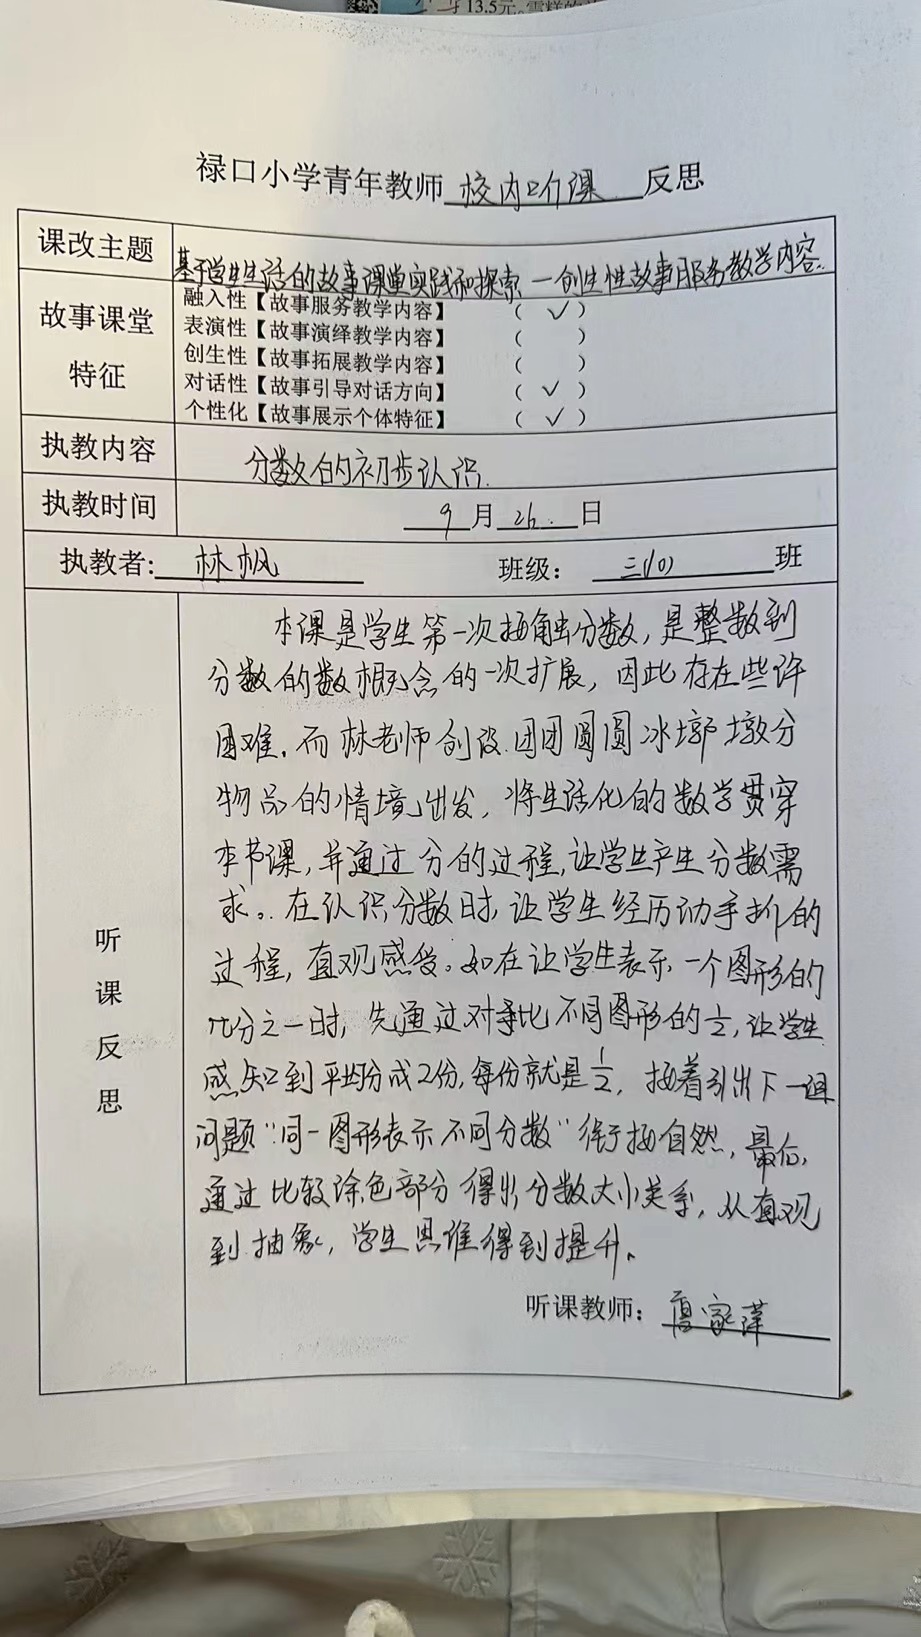 13.5元
禄口小学青年教师 校内公开课 反思
课改主题 基于学生生活的故事课堂实践和探索—创生性故事服务教学内容.
故事课堂特征
融入性【故事服务教学内容】 ( ✓ )
表演性【故事演绎教学内容】 ( )
创生性【故事拓展教学内容】 ( )
对话性【故事引导对话方向】 ( ✓ )
个性化【故事展示个体特征】 ( ✓ )
执教内容 分数的初步认识.
执教时间 9月26.日
执教者: 林枫 班级: 班
听课反思
本课是学生第一次接触分数,是整数到
分数的数概念的一次扩展,因此存在些许
困难.而林老师创设.团团圆圆冰墩墩分
物品的情境出发,将生活化的数学贯穿
本节课,并通过分的过程,让学生产生分数需
求。在认识分数时,让学生经历动手折的
过程,直观感受。如在让学生表示一个图形的
几分之一时,先通过对比不同图形的½,让学生
感知到平均分成2份,每份就是½,接着引出下一组
问题"同一图形表示不同分数"衔接自然,最后,
通过比较涂色部分得出分数大小关系,从直观
到抽象,学生思维得到提升。
听课教师: